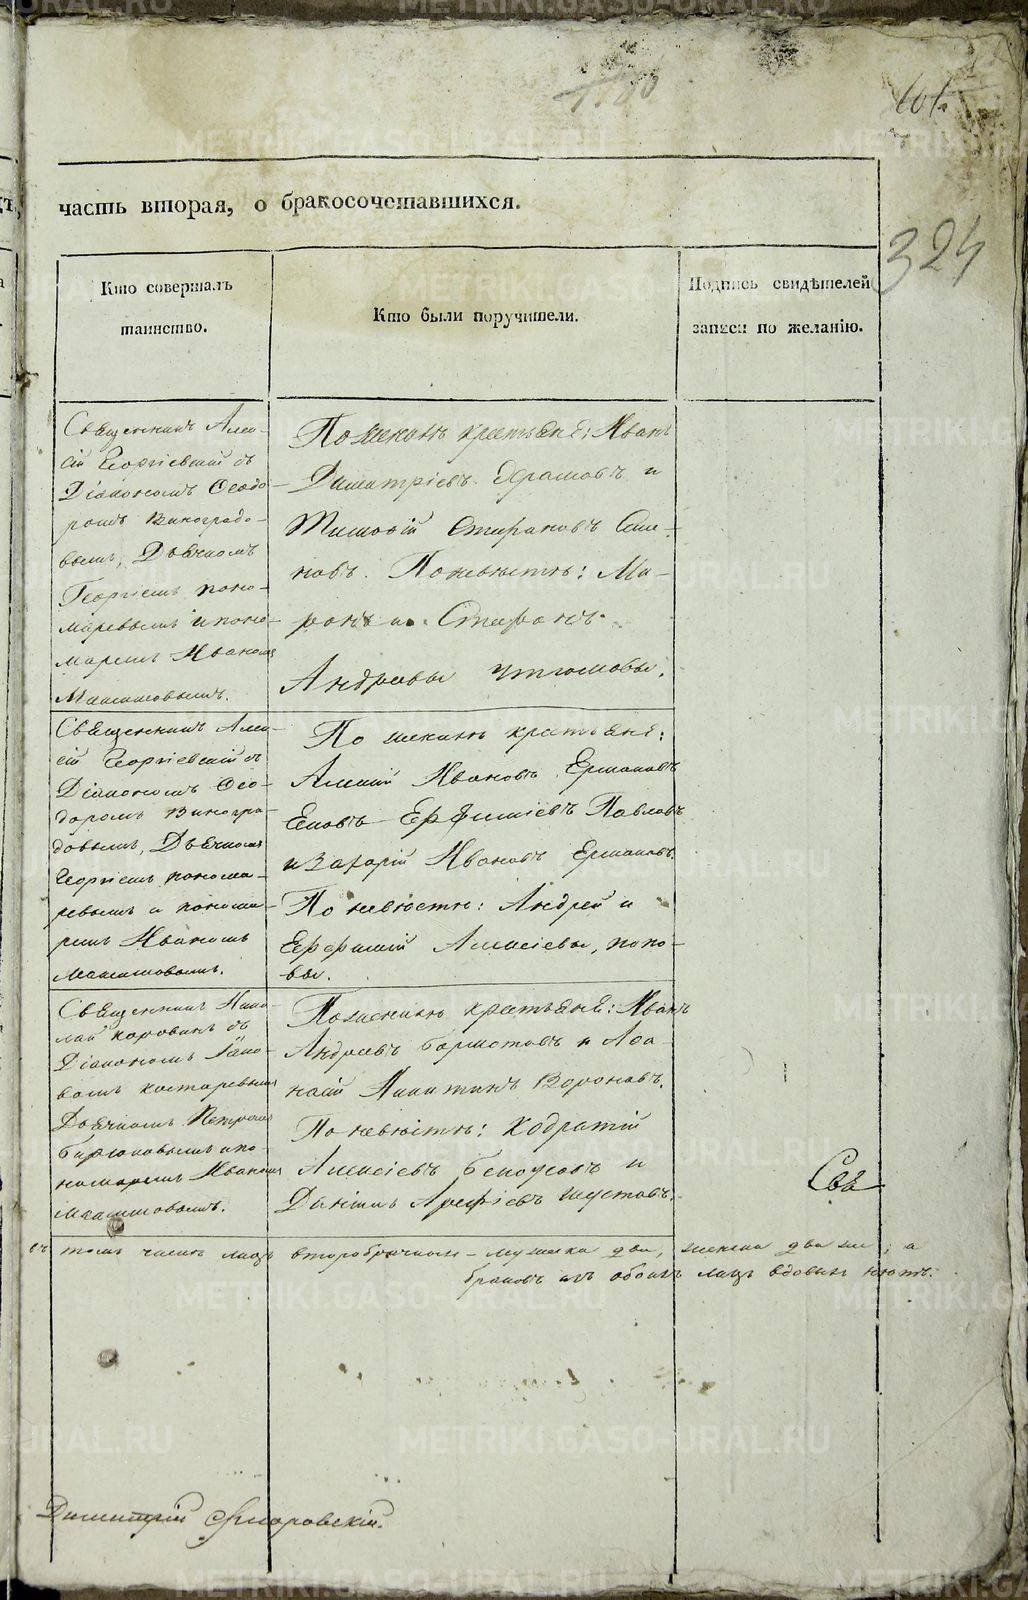 324
часть вторая, о бракосочетавшихся.
Кто совершалъ
таинство.
Кто были поручители.
Подпись свидѣтелей
записи по желанію.
Священникъ Алек-
сій Георгіевскій съ
Діакономъ Ѳеодо-
ромъ Виноградо-
вымъ, Дьячкомъ
Георгіемъ Поно-
маревымъ и поно-
маремъ Иваномъ
Максимовымъ.
По женихѣ крестьяне: Иванъ
Димитріевъ и
Тимоѳій Стефановъ Сме-
новъ. По невѣстѣ: Ми-
ронъ и Стефанъ
Андреевы
Священникъ Алек-
сій Георгіевскій съ
Діакономъ Ѳео-
доромъ Виногра-
довымъ, Дьячкомъ
Георгіемъ Понома-
ревымъ и понома-
ремъ Иваномъ
Максимовымъ.
По женихѣ крестьяне:
Алексій Ивановъ Ермаковъ
Павловъ
и Захарій Ивановъ Ермаковъ.
По невѣстѣ: Андрей и
Алексіевы, Попо-
вы.
Священникъ Нико-
лай Коровинъ съ
Діакономъ Іако-
вомъ Костаревымъ
Дьячкомъ Петромъ
Бирюковымъ и по-
номаремъ Иваномъ
Максимовымъ.
По женихѣ крестьяне: Иванъ
Андреевъ и Аѳа-
насій Никитинъ Вороновъ.
По невѣстѣ: Кодратій
Алексіевъ и
Даніилъ Шустовъ.
въ томъ числѣ лицъ второбрачныхъ – мужеска два, женска два же; а
браковъ изъ обоихъ лицъ вдовыхъ нѣтъ.
Димитрій
METRIKI.GASO-URAL.RU